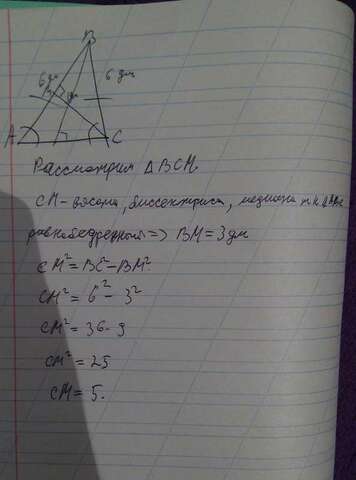 B
6 дм
6 дм
M
A
C
Рассмотрим ΔBCM
CM - высота, биссектриса, медиана т.к. Δ
равнобедренный => BM = 3 дм
CM² = BC² - BM²
CM² = 6² - 3²
CM² = 36 - 9
CM² = 25
CM = 5.